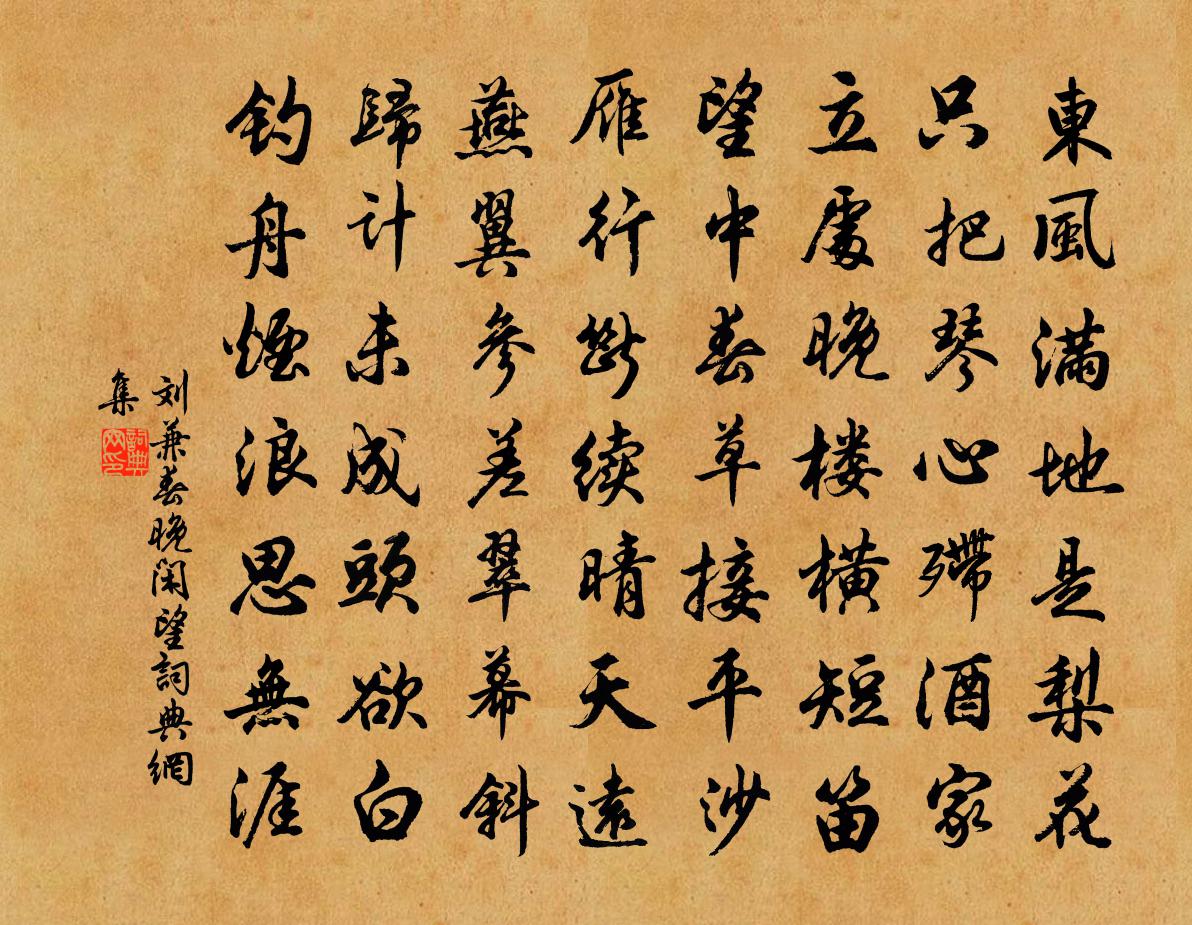 東風滿地是梨花
只把琴心殢酒家
立處晚楼橫短笛
望中春草接平沙
雁行斷续晴天遠
燕翼參差翠幕斜
歸计未成頭欲白
釣舟煙浪思無涯
刘兼春晚闲望詞典網
集
詞典
网印